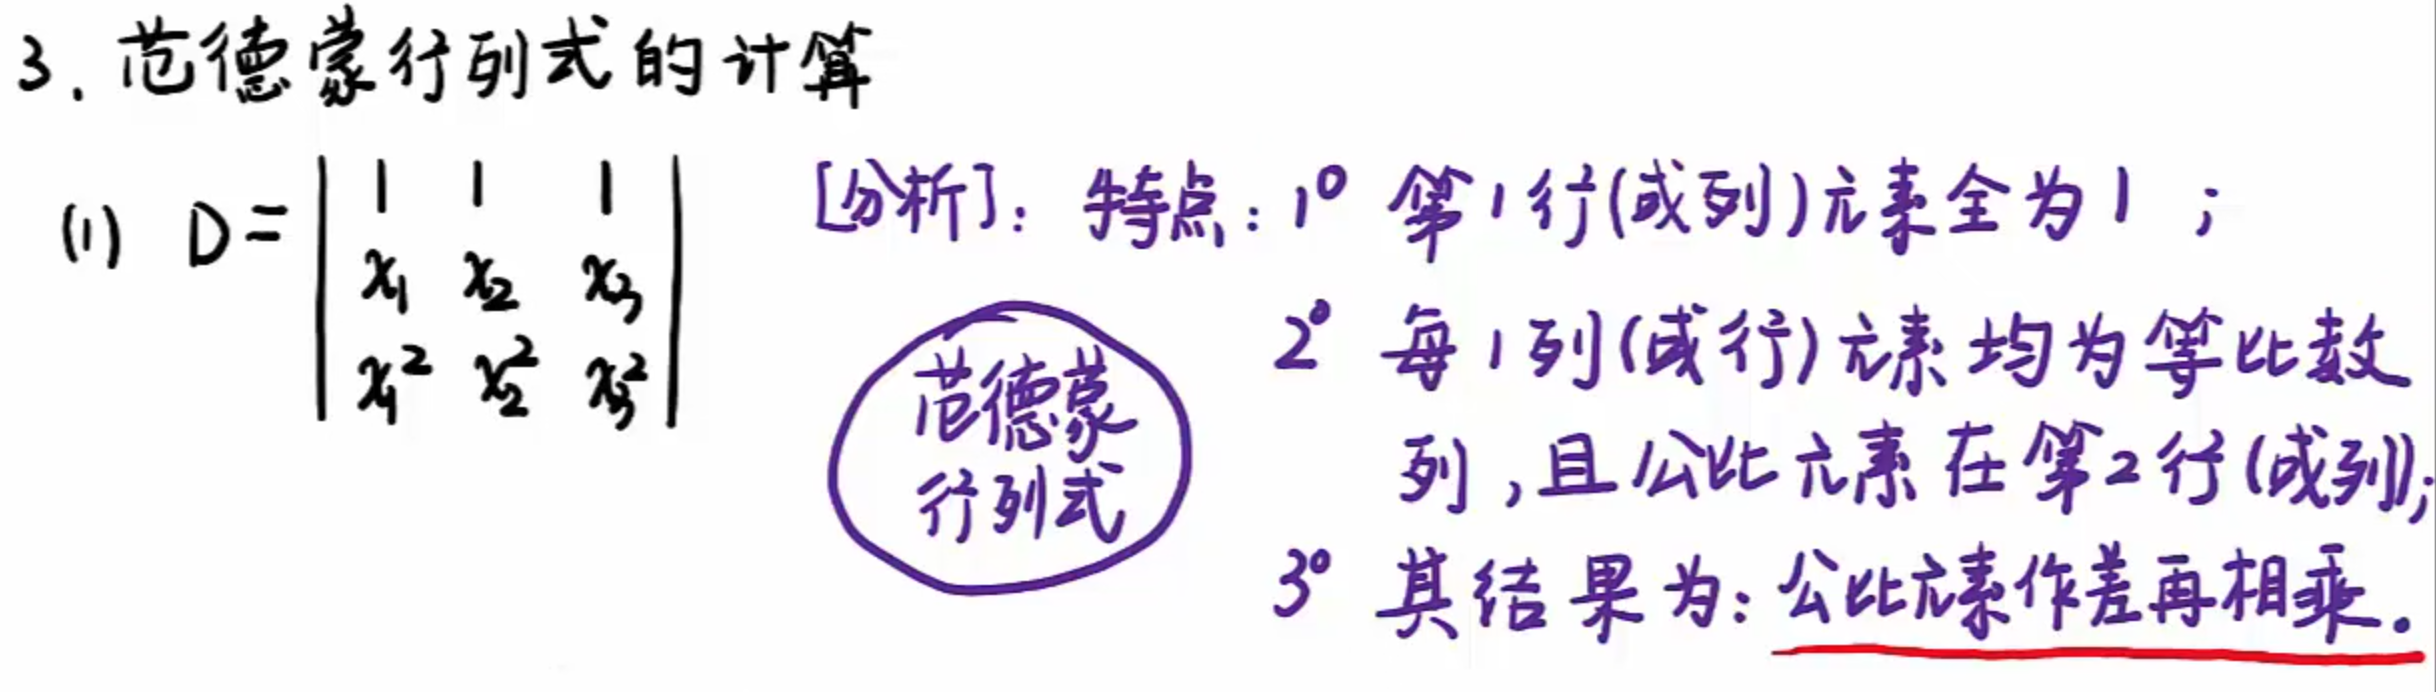 3. 范德蒙行列式的计算
(1) D = | 1 1 1 |
| x₁ x₂ x₃ |
| x₁² x₂² x₃² |
[分析]: 特点: 1° 第1行(或列)元素全为1 ;
2° 每1列(或行)元素均为等比数
列,且公比元素在第2行(或列);
3° 其结果为: 公比元素作差再相乘.
范德蒙
行列式